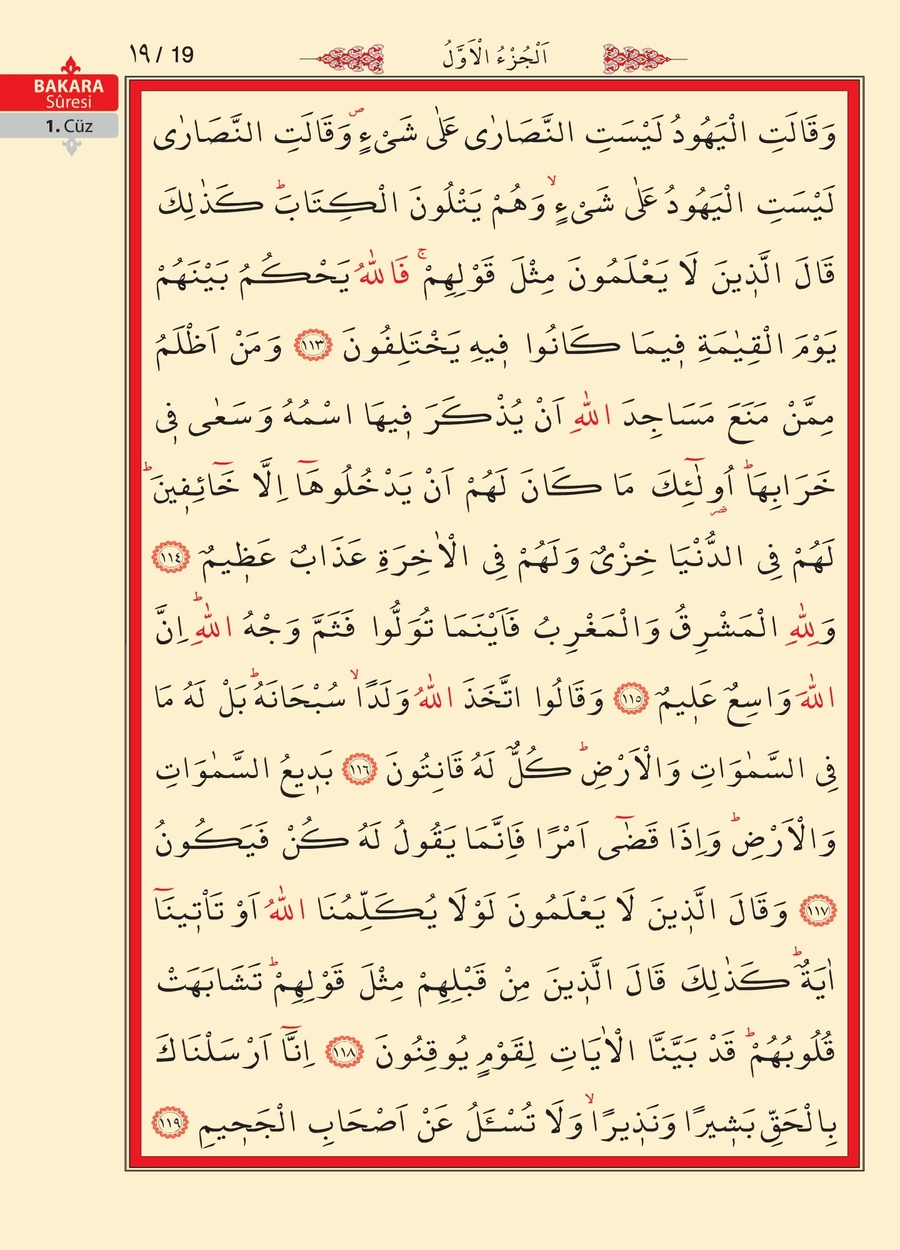 ١٩ / 19
اَلْجُزْءُ الْاَوَّلُ
BAKARA
Sûresi
1. Cüz
وَقَالَتِ الْيَهُودُ لَيْسَتِ النَّصَارٰى عَلٰى شَىْءٍۖ وَقَالَتِ النَّصَارٰى
لَيْسَتِ الْيَهُودُ عَلٰى شَىْءٍۙ وَهُمْ يَتْلُونَ الْكِتَابَۜ كَذٰلِكَ
قَالَ الَّذ۪ينَ لَا يَعْلَمُونَ مِثْلَ قَوْلِهِمْۚ فَاللّٰهُ يَحْكُمُ بَيْنَهُمْ
يَوْمَ الْقِيٰمَةِ ف۪يمَا كَانُوا ف۪يهِ يَخْتَلِفُونَ ﴿١١٣﴾ وَمَنْ اَظْلَمُ
مِمَّنْ مَنَعَ مَسَاجِدَ اللّٰهِ اَنْ يُذْكَرَ ف۪يهَا اسْمُهُ وَسَعٰى ف۪ى
خَرَابِهَاۜ اُو۬لٰٓئِكَ مَا كَانَ لَهُمْ اَنْ يَدْخُلُوهَٓا اِلَّا خَٓائِف۪ينَۜ
لَهُمْ فِى الدُّنْيَا خِزْىٌ وَلَهُمْ فِى الْاٰخِرَةِ عَذَابٌ عَظ۪يمٌ ﴿١١٤﴾
وَلِلّٰهِ الْمَشْرِقُ وَالْمَغْرِبُ فَاَيْنَمَا تُوَلُّوا فَثَمَّ وَجْهُ اللّٰهِۜ اِنَّ
اللّٰهَ وَاسِعٌ عَل۪يمٌ ﴿١١٥﴾ وَقَالُوا اتَّخَذَ اللّٰهُ وَلَدًاۙ سُبْحَانَهُۜ بَلْ لَهُ مَا
فِى السَّمٰوَاتِ وَالْاَرْضِۜ كُلٌّ لَهُ قَانِتُونَ ﴿١١٦﴾ بَد۪يعُ السَّمٰوَاتِ
وَالْاَرْضِۜ وَاِذَا قَضٰٓى اَمْرًا فَاِنَّمَا يَقُولُ لَهُ كُنْ فَيَكُونُ
﴿١١٧﴾ وَقَالَ الَّذ۪ينَ لَا يَعْلَمُونَ لَوْلَا يُكَلِّمُنَا اللّٰهُ اَوْ تَأْت۪ينَٓا
اٰيَةٌۜ كَذٰلِكَ قَالَ الَّذ۪ينَ مِنْ قَبْلِهِمْ مِثْلَ قَوْلِهِمْۜ تَشَابَهَتْ
قُلُوبُهُمْۜ قَدْ بَيَّنَّا الْاٰيَاتِ لِقَوْمٍ يُوقِنُونَ ﴿١١٨﴾ اِنَّٓا اَرْسَلْنَاكَ
بِالْحَقِّ بَش۪يرًا وَنَذ۪يرًاۙ وَلَا تُسْـَٔلُ عَنْ اَصْحَابِ الْجَح۪يمِ ﴿١١٩﴾